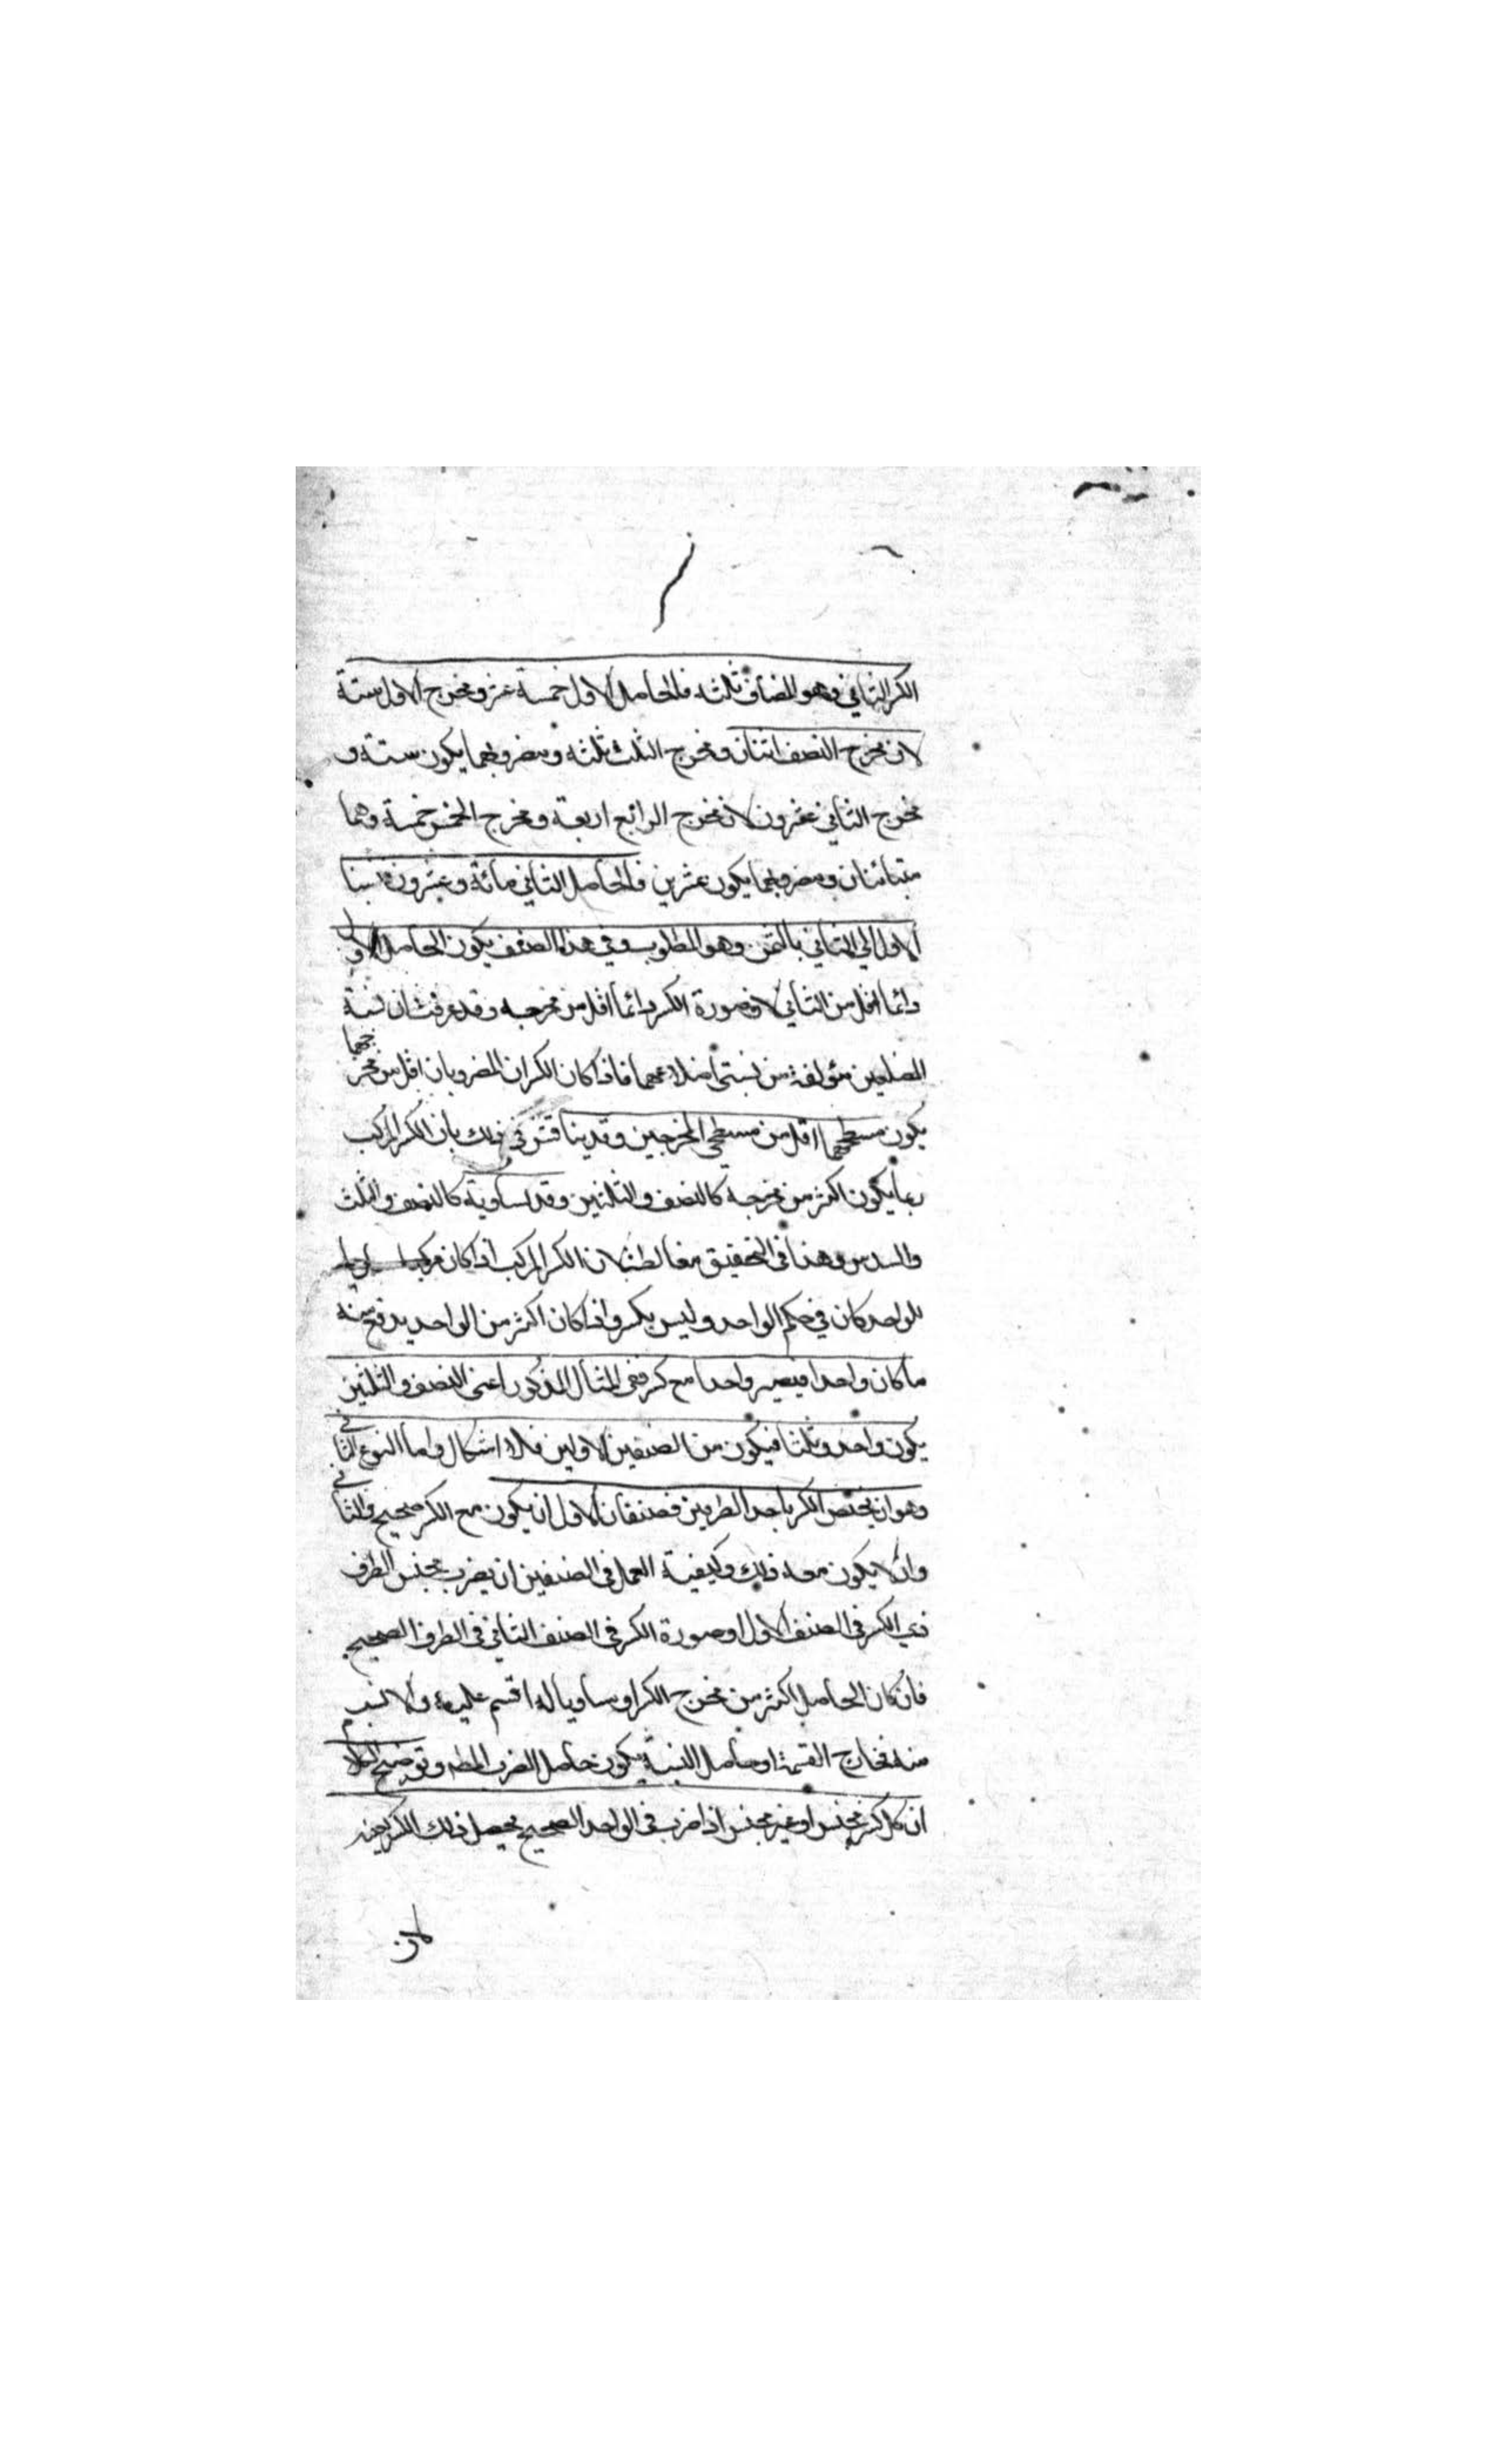 الكسر الثاني وهو المضاف ثلثه فالحاصل الاول خمسة عشر ومخرج الاول ستة
لان مخرج النصف اثنان ومخرج الثلث ثلثه ومضروبهما يكون ستة و
مخرج الثاني عشرون لان مخرج الرابع اربعة ومخرج الخمس خمسة وهما
متبائنان ومضروبهما يكون عشرين فالحاصل الثاني مائة وعشرون نسبنا
الاول الي الثاني بالثمن وهو المطلوب وفي هذا الصنف يكون الحاصل الاول
دائما اقل من الثاني لان صورة الكسر دائما اقل من مخرجه وقد عرفت ان نسبة
المضلعين مؤلفة من نسبتي اضلاعهما فاذا كان الكسران المضروبان اقل من مخرجهما
يكون مسطحهما اقل من مسطحي المخرجين وقد يناقش في ذلك بان الكسر المركب
ربما يكون اكثر من مخرجه كالنصف والثلثين وقد يساويه كالنصف والثلث
والسدس وهذا في التحقيق مغالطة لان الكسر المركب اذا كان
للواحد كان في حكم الواحد وليس بكسر واذا كان اكثر من الواحد يرفع منه
ما كان واحدا فيصير واحدا مع كسر ففي المثال المذكور اعني النصف والثلثين
يكون واحد وثلثا فيكون من الصنفين الاولين فلا اشكال واما النوع الثاني
وهو ان يختص الكسر باحد الطرفين فصنفان الاول ان يكون مع الكسر صحيح والثاني
وان لا يكون معه ذلك وكيفية العمل في الصنفين ان يضرب مجنس الطرف
ذي الكسر في الصنف الاول او صورة الكسر في الصنف الثاني في الطرف الصحيح
فان كان الحاصل اكثر من مخرج الكسر او مساويا له اقسم عليه والا نسب
منه فخارج القسمة او حاصل النسبة يكون حاصل الضرب المط وتوضيح
ان كل كسر مجنس او غير مجنس اذا ضرب في الواحد الصحيح يحصل ذلك الكسر بعينه